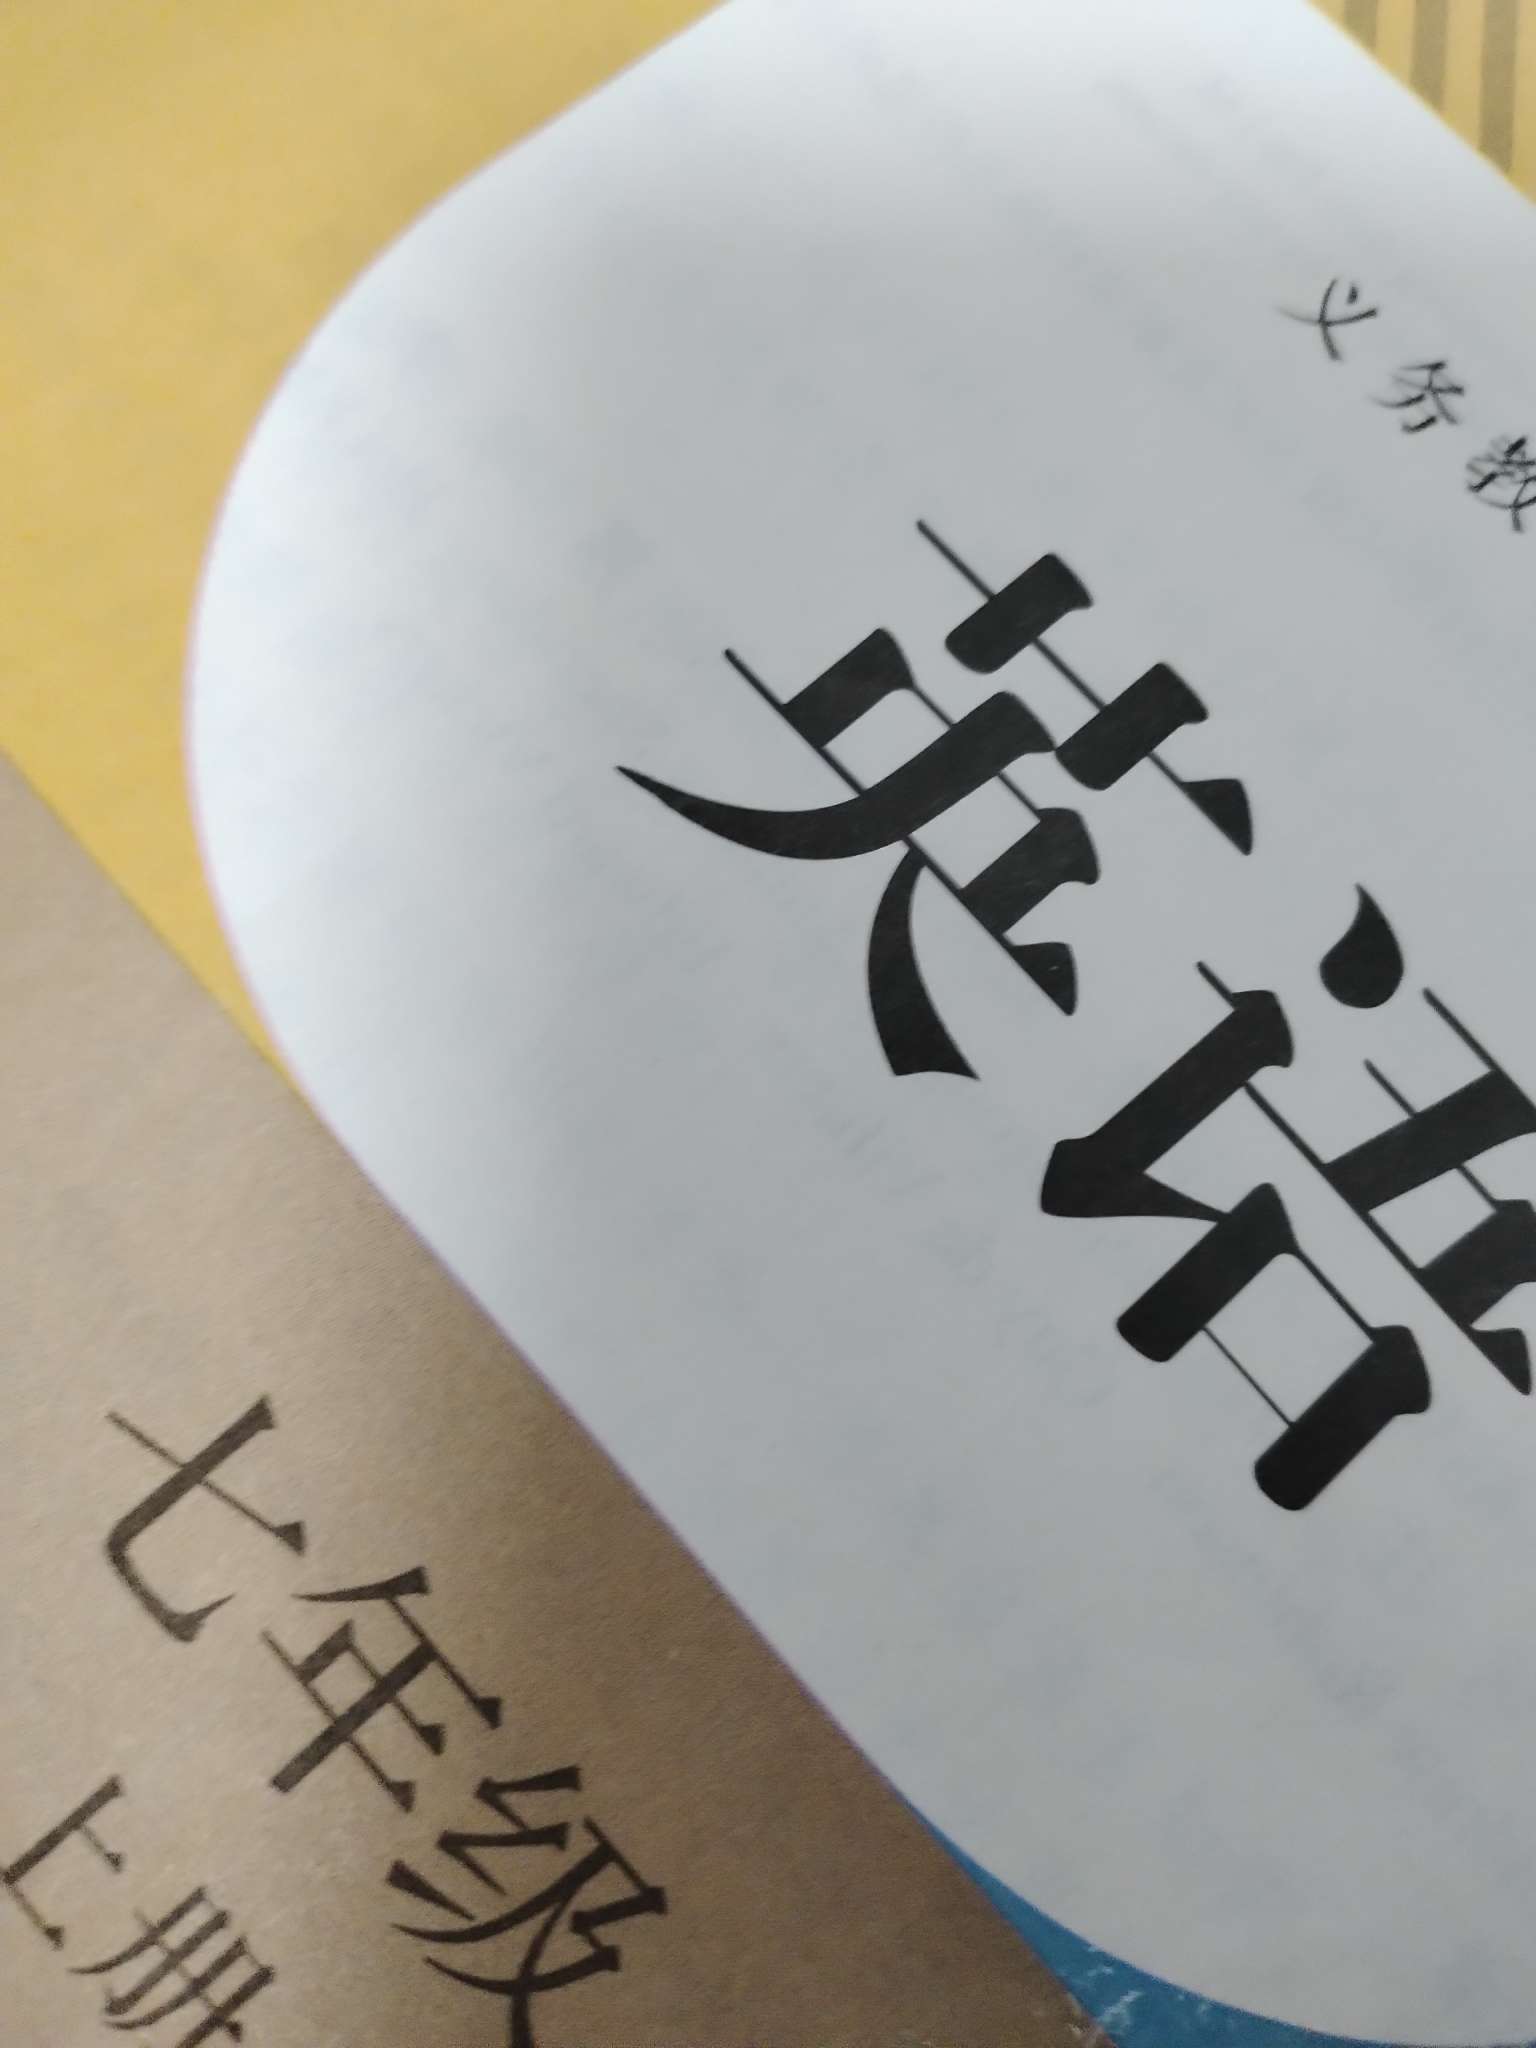 义务教
英语
七年级
上册